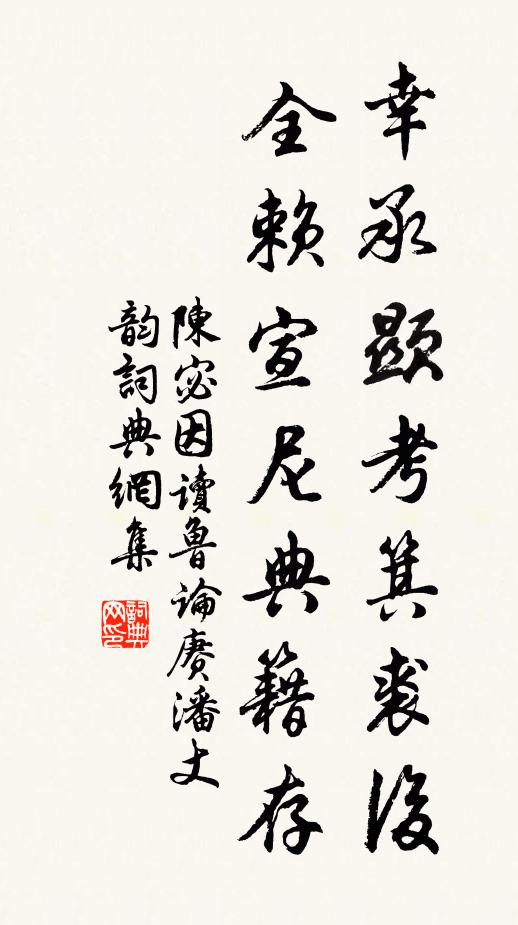 幸承顯考箕裘後
全賴宣尼典籍存
陳宓因讀魯論賡潘丈
韵詞典網集
詞典网印